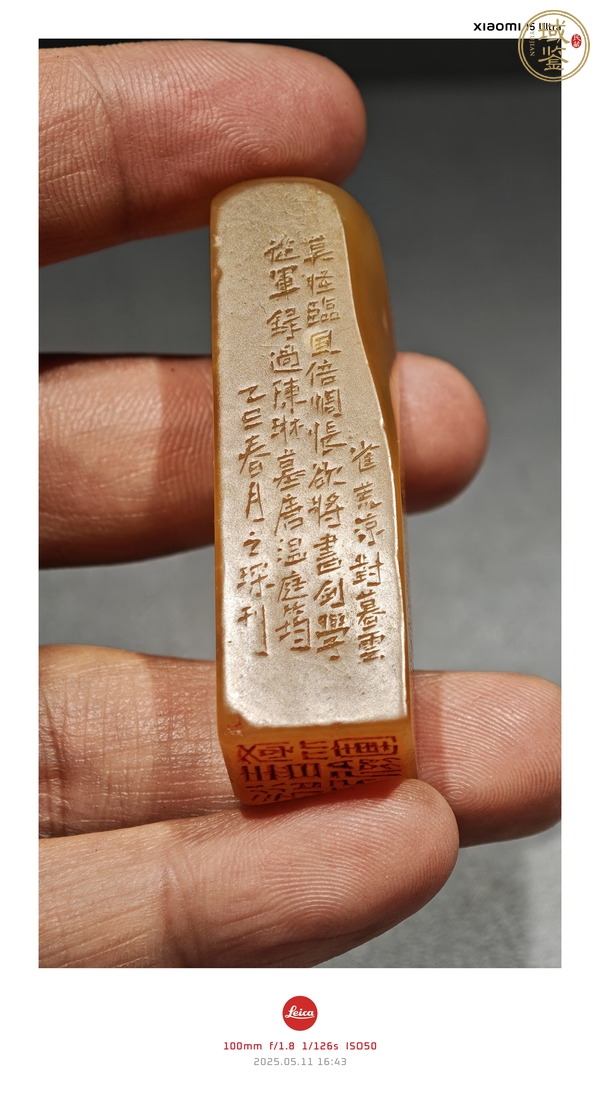 XIAOMI 15 Ultra
域鉴
雀荒涼對暮雲
莫怪臨風倍惆悵欲將書劍學
從軍錄過陳琳墓唐温庭筠
乙巳春月之琛刊
Leica
100mm f/1.8 1/126s ISO50
2025.05.11 16:43